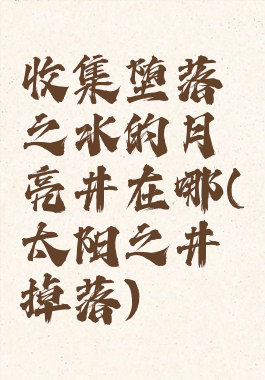 收集堕落
之水的月
亮井在哪(
太阳之井
掉落)